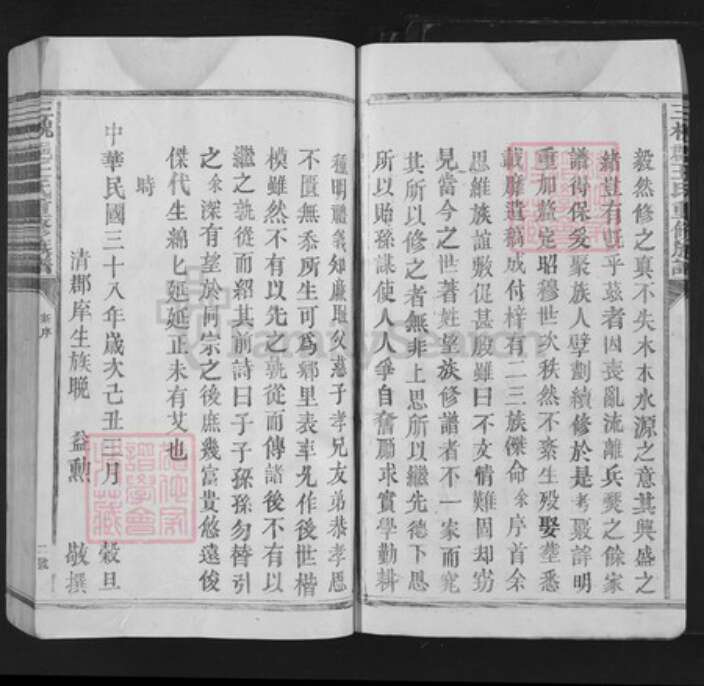 毅然修之真不失木本水源之意其興盛之
緒豈有既乎茲者因喪亂流離兵燹之餘家
譜得保妥聚族人擘劃續修於是考覈詳明
重加釐定昭穆世次秩然不紊生歿娶塟悉
載靡遺稿成付梓有二三族傑命余序首余
思維族誼敷促甚殷雖曰不文情難固却窃
見當今之世著姓望族修譜者不一家而究
其所以修之者無非上思所以繼先德下思
所以貽孫謀使人人爭自奮勵求實學勤耕
種明禮義知廉恥父慈子孝兄友弟恭孝思
不匱無忝所生可為鄉里表率允作後世楷
模雖然不有以先之孰從而傳諸後不有以
繼之孰從而紹其前詩曰子子孫孫勿替引
之余深有望於同宗之後庶幾富貴悠遠俊
傑代生綿匕延延正未有艾也
時
中華民國三十八年歲次己丑三月 穀旦
清郡庠生族晚 益勲 敬撰
重修族譜
序
二號
FamilySearch